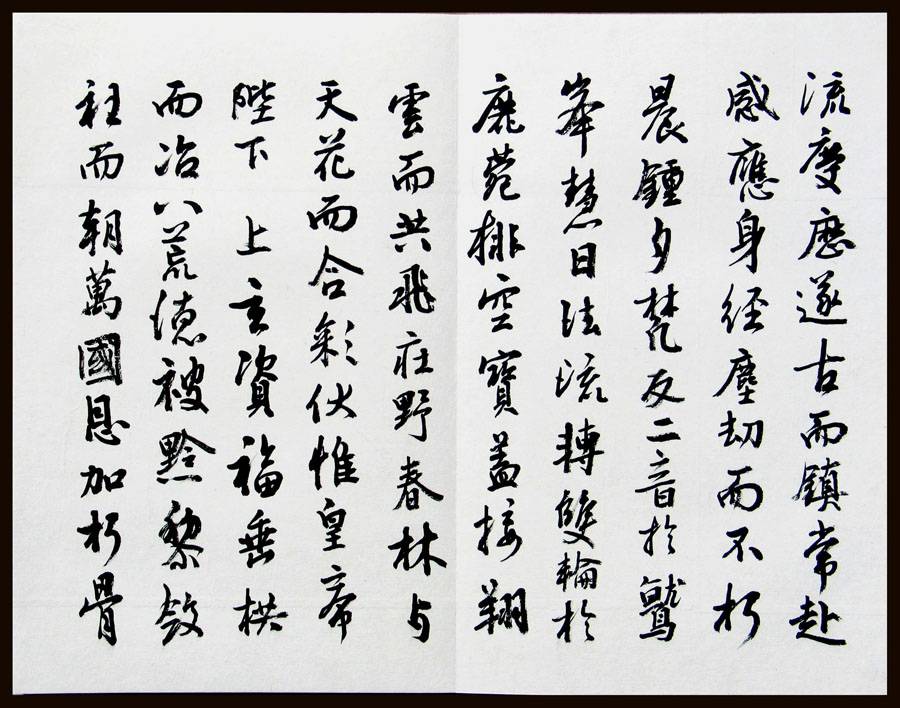 流慶歷遂古而鎮常赴
感應身經塵劫而不朽
晨鍾夕梵交二音於鷲
峯慧日法流轉雙輪於
鹿菀排空寶蓋接翔
雲而共飛莊野春林与
天花而合彩伏惟皇帝
陛下 上玄資福垂拱
而治八荒德被黔黎斂
衽而朝萬國恩加朽骨